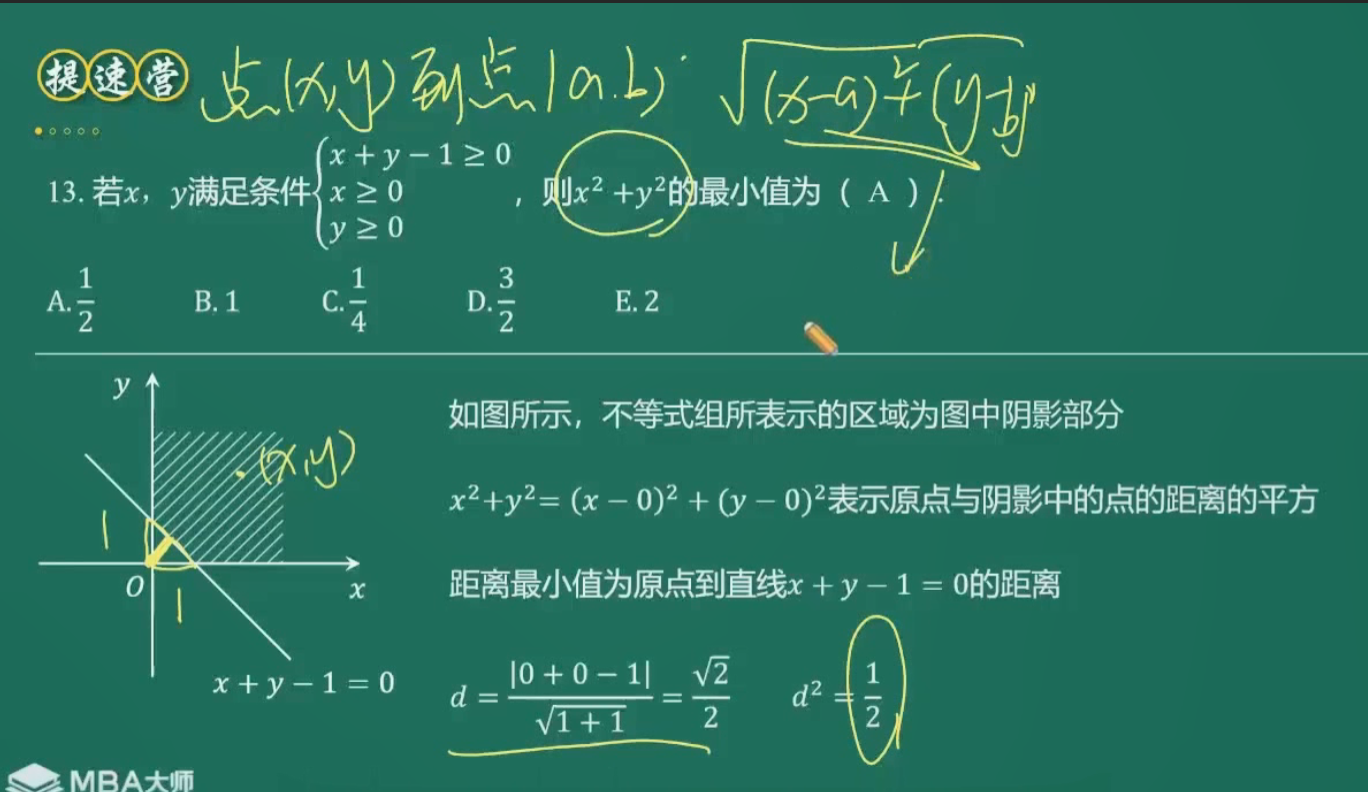 提速营
点(x,y)到点(a.b) √(x-a)²+(y-b)²
13. 若x，y满足条件{x + y − 1 ≥ 0
x ≥ 0
y ≥ 0
，则x²+y²的最小值为（ A ）.
A. 1/2 B. 1 C. 1/4 D. 3/2 E. 2
y
(x,y)
1
O
1
x
x + y − 1 = 0
如图所示，不等式组所表示的区域为图中阴影部分
x²+y²= (x − 0)² + (y − 0)²表示原点与阴影中的点的距离的平方
距离最小值为原点到直线x + y − 1 = 0的距离
d = |0 + 0 − 1|/√(1 + 1) = √2/2 d² = 1/2
MBA大师